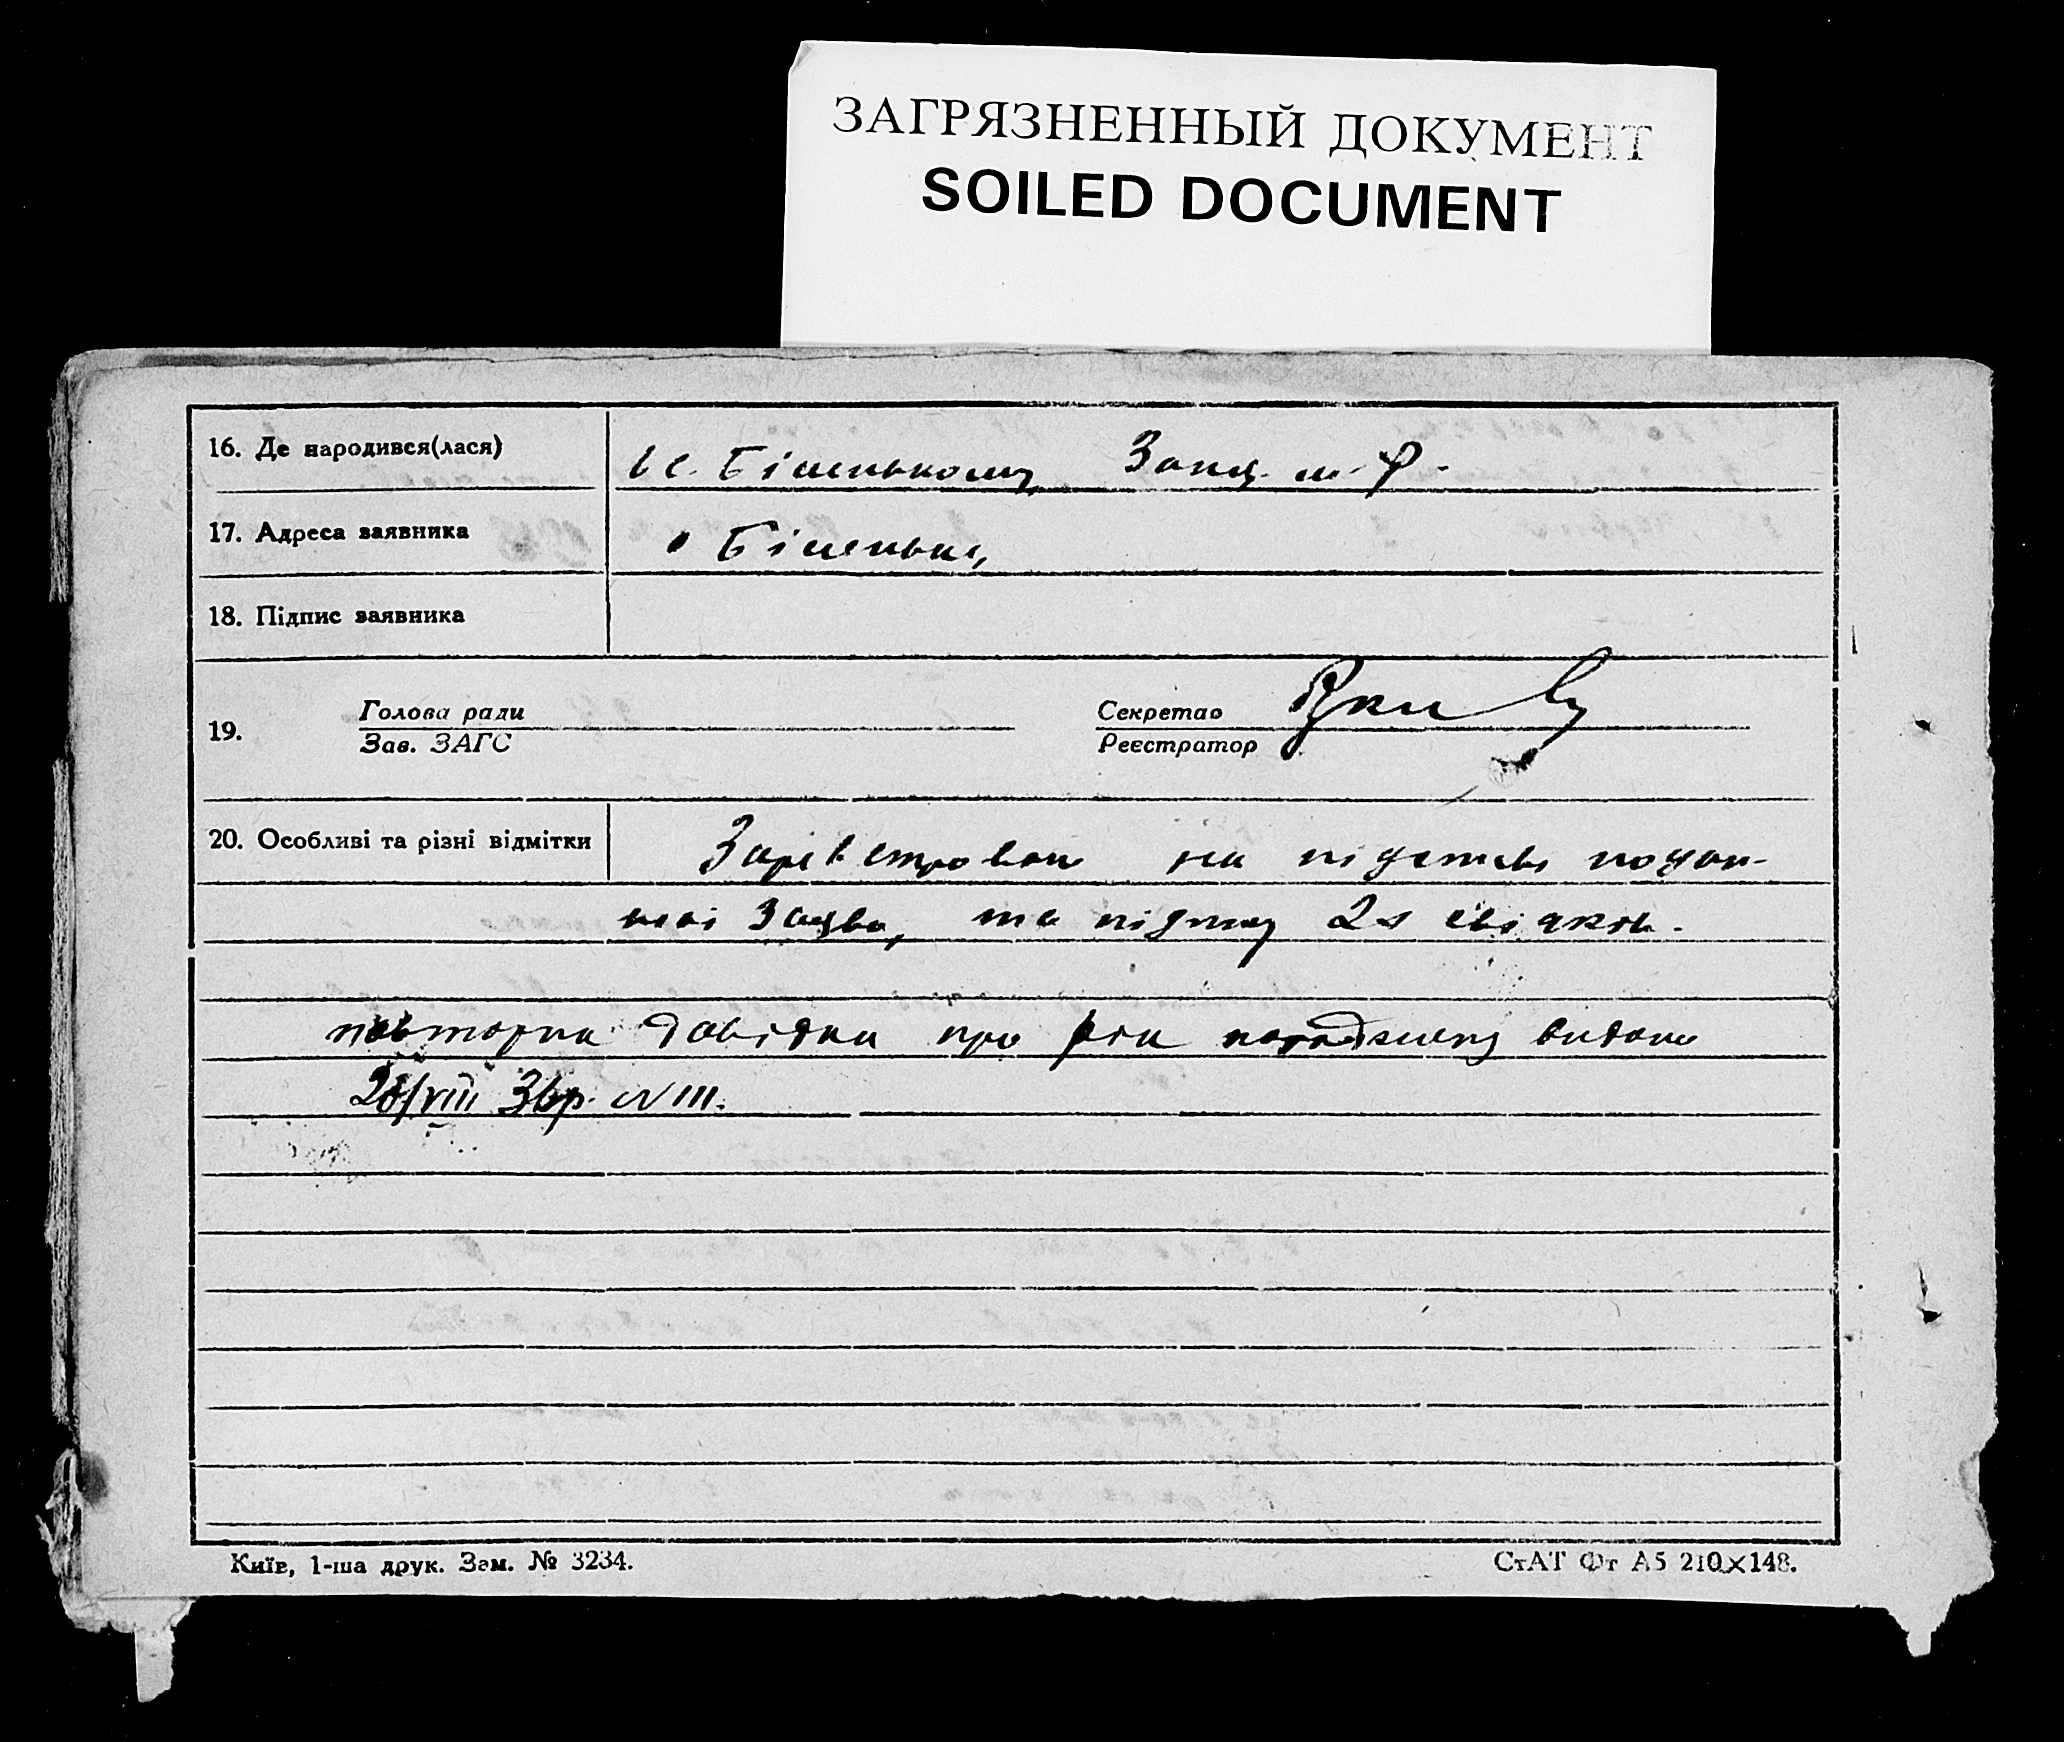 ЗАГРЯЗНЕННЫЙ ДОКУМЕНТ
SOILED DOCUMENT
16. Де народився(лася)
в с. Біленькому, Запор. м. р.
17. Адреса заявника
с Біленьке,
18. Підпис заявника
19. Голова ради
Зав. ЗАГС
Секретар
Реєстратор
20. Особливі та різні відмітки
Заревстровано на підставі подан-
ної Заяви, та підпису 2х свідків.
повторна довідка про рік народженя видана
28/VIII 36р. №111.
Київ, 1-ша друк. Зам. № 3234.
СтАТ Фт А5 210×148.